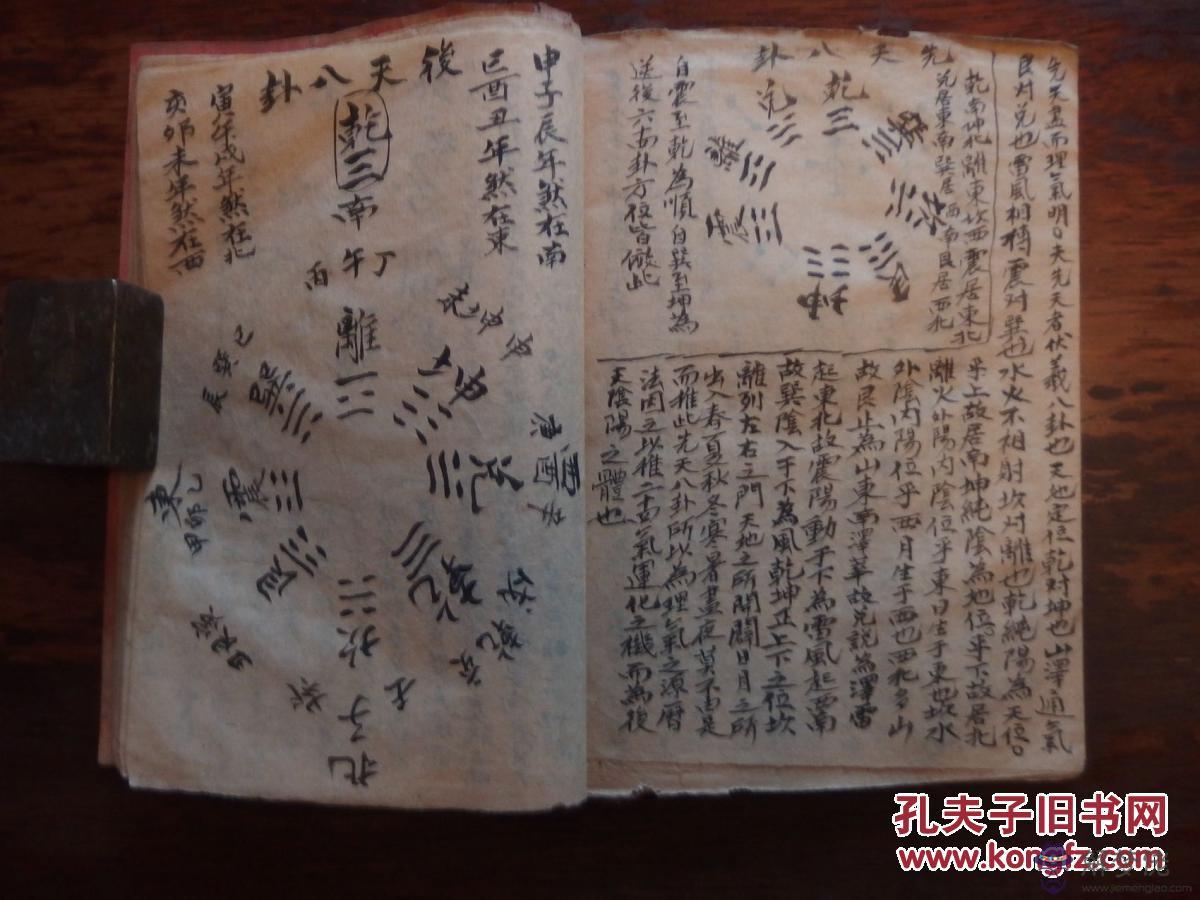 先天畫而理氣明夫先天者伏羲八卦也天地定位乾对坤也山澤通氣
艮对兑也雷風相搏震对巽也水火不相射坎对離也乾純陽為天位
乎上故居南坤純陰為地位乎下故居北
離火外陽内陰位乎東日生于東也坎水
外陰内陽位乎西月生于西也西北多山
故艮止為山東南澤萃故兑説為澤雷
起東北故震陽動于下為雷風起西南
故巽陰入于下為風乾坤正上下之位坎
離列左右之門天地之所開闢日月之所
出入春夏秋冬寒暑晝夜莫不由是
而推此先天八卦所以為理氣之源曆
法因之以推二十四氣運化之機而為後
天陰陽之體也
乾南坤北離東坎西震居東北
兑居東南巽居西南艮居西北
先天八卦
乾
兑
巽
離
坎
震
艮
坤
自震至乾為順自巽至坤為
逆後六十四卦方位皆倣此
申子辰年煞在南
巳酉丑年煞在東
後天八卦
乾
南
丁
午
丙
離
寅午戌年煞在北
亥卯未年煞在西
坤
未坤申
兑
西
庚酉辛
乾
戌乾亥
坎
子
壬
癸
北
艮
震
東
甲卯乙
巽
辰巽巳
孔夫子旧书网
www.kongfz.com
www.jiemengjiao.com